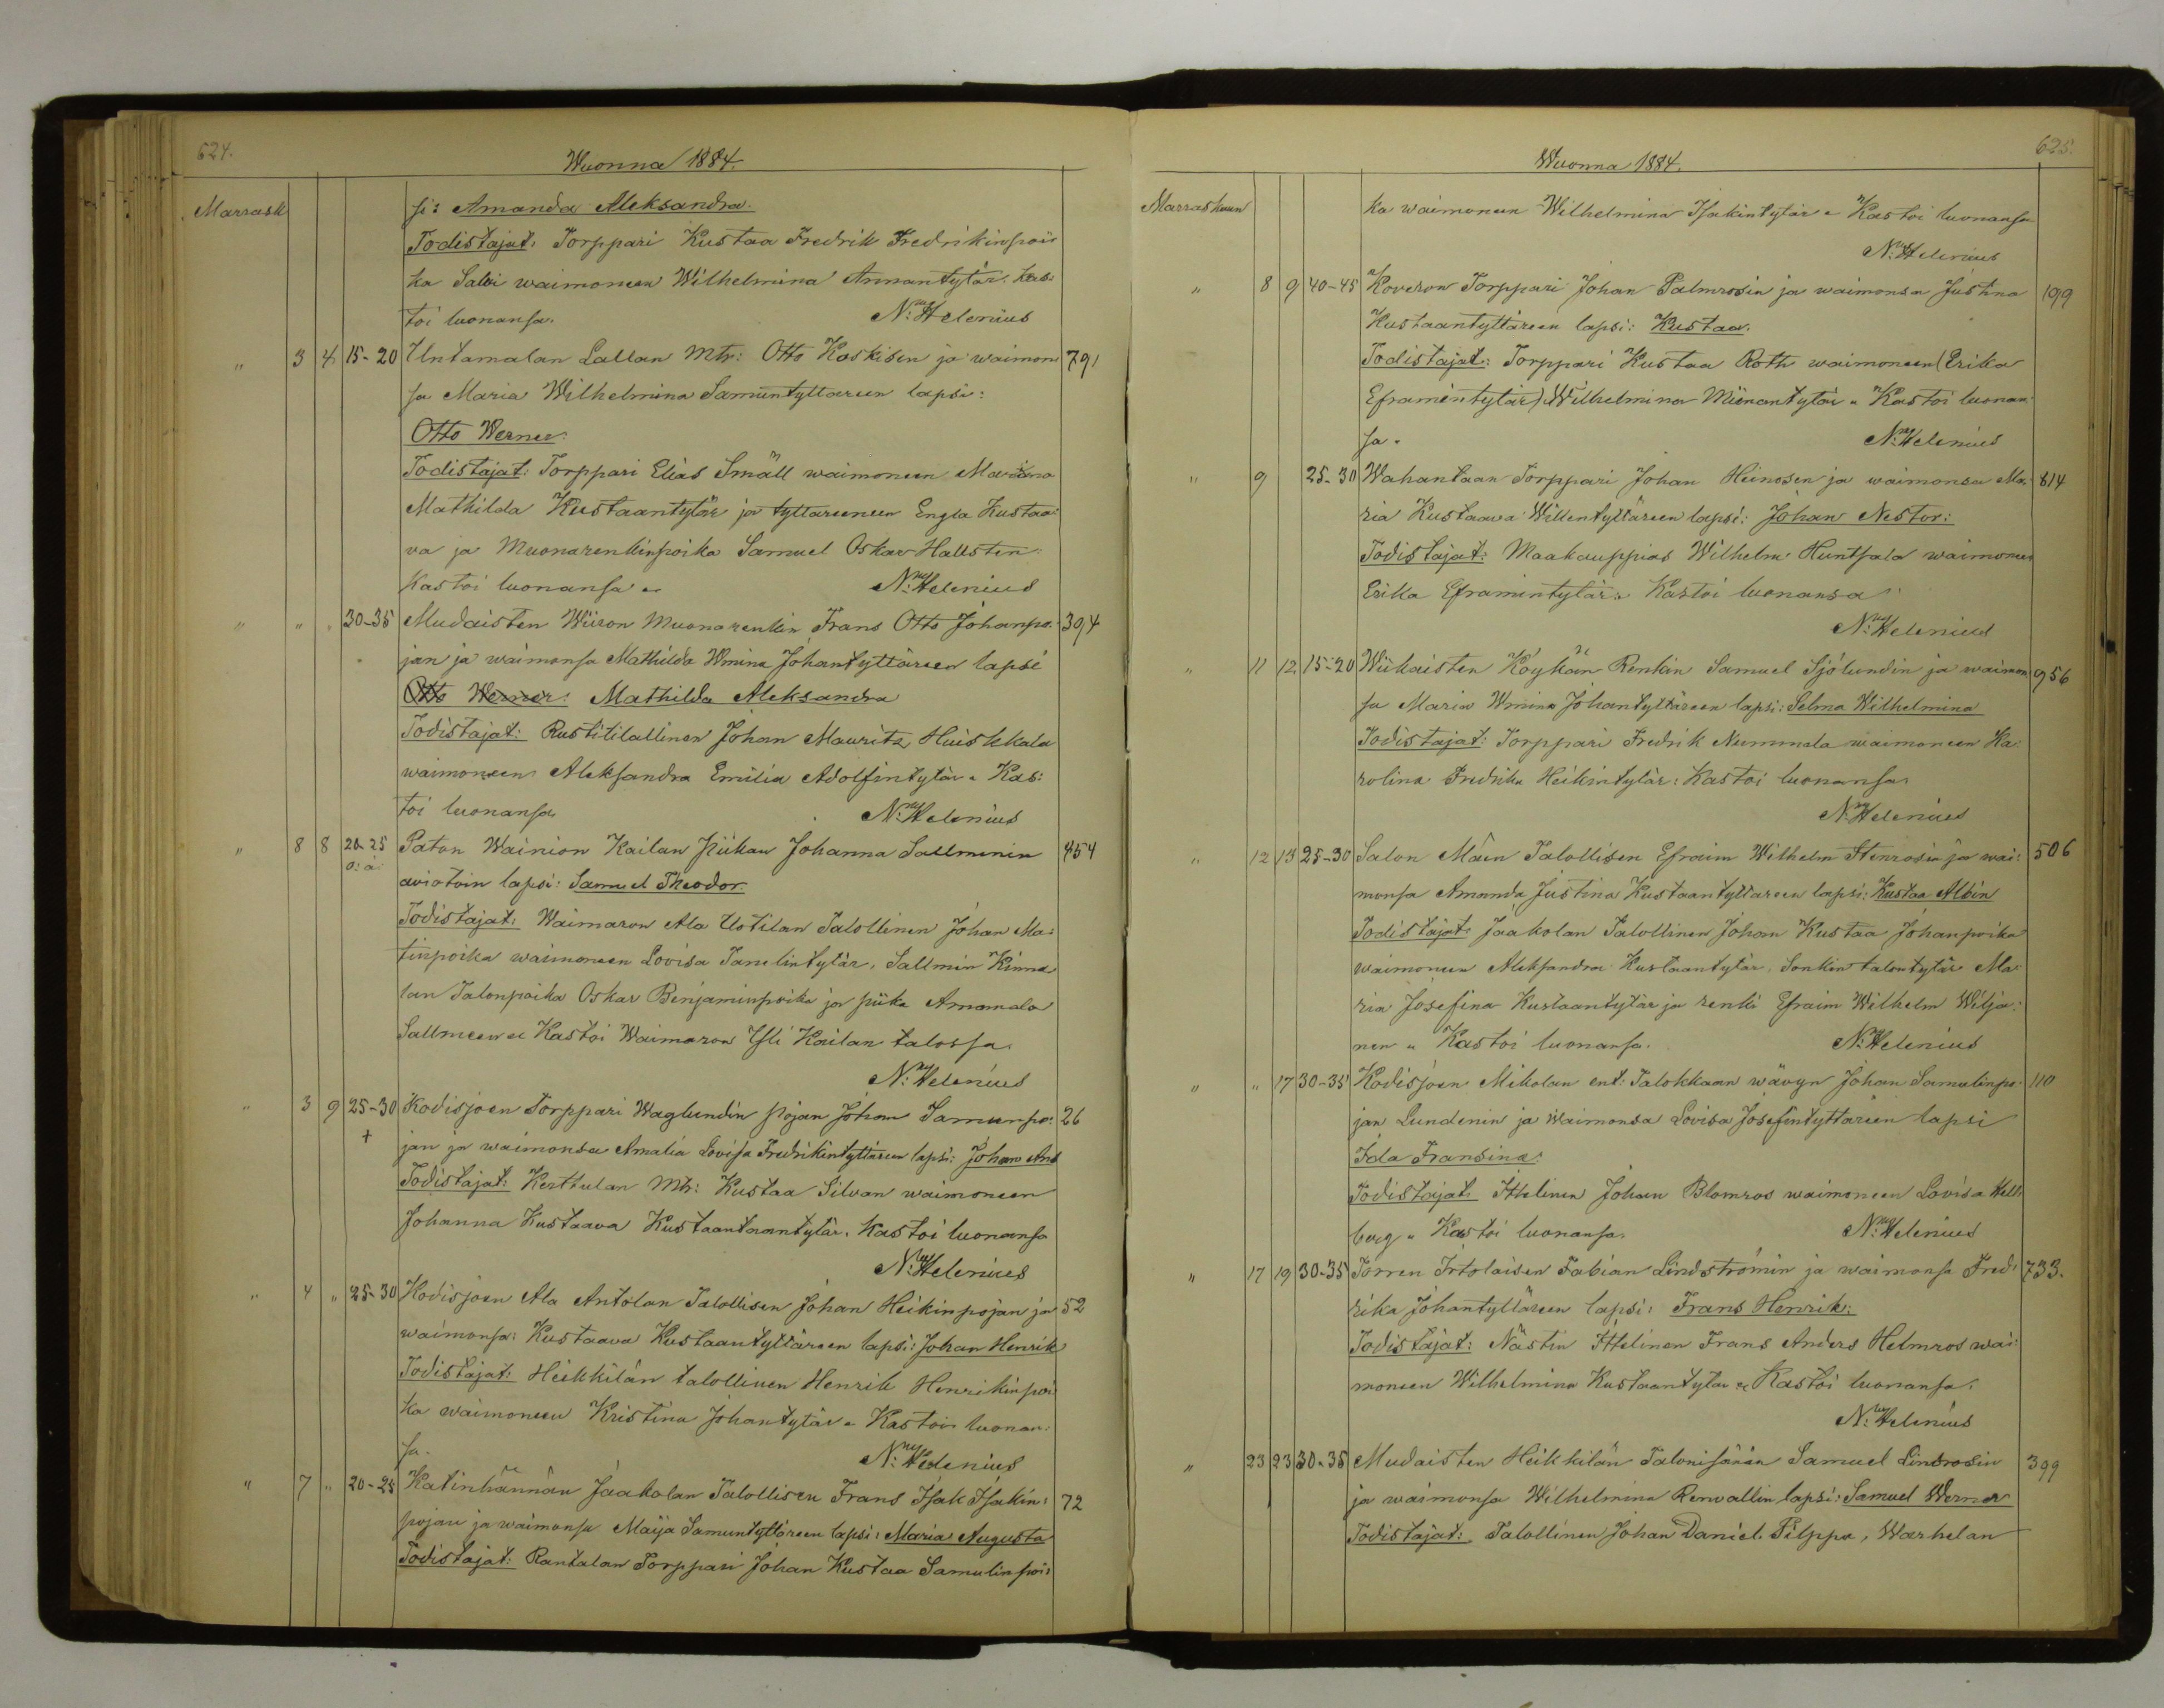 624.
Wuonna 1884.
Marrask
si: Amanda Aleksandra.
Todistajat: Torppari Kustaa Fredrik Fredrikinpoi
ka Salvi waimoneen Wilhelmina Annantytär. Kas:
toi luonansa. N: Helenius
" 3 4 15-20 Untamalan Lallan Mtr: Otto Koskisen ja waimon 791
sa Maria Wilhelmina Samuntyttäreen lapsi:
Otto Werner.
Todistajat: Torppari Elias Smäll waimoneen
Mathilda Kustaantytär ja tyttäreeneen Engla Kustaa:
va ja Muonarenkinpoika Samuel Oskar Hallsten
Kastoi luonansa N: Helenius
" " " 30-35 Mudaisten Wiiron Muonarenkin Frans Otto Johanpo: 394
jan ja waimonsa Mathilda Wmina Johantyttäreen lapsi
Otto Werner: Mathilda Aleksandra
Todistajat: Rustitilallinen Johan Mauritz Huiskkala
waimoneen Aleksandra Emilia Adolfintytär " Kas:
toi luonansa N: Helenius
" 8 8 20-25 Paton Wainion Kailan Piikan Johanna Sallminin 454
o: ä: aviotoin lapsi: Samuel Theodor.
Todistajat: Waimaron Ala Uotilan Talollinen Johan Ma:
tinpoika waimoneen Lovisa Tanelintytär, Sallmin Kinna
lan Talonpoika Oskar Benjaminpoika ja piika Amanda
Sallmeen " Kastoi Waimaron Yli Kailan talossa.
N: Helenius
" 3 9 25-30 Kodisjoen Torppari Waglundin Pojan Johan Samunpo: 26
+ jan ja waimonsa Amalia Lovisa Fredrikintyttäreen lapsi: Johan Ant
Todistajat: Kerttulan Mtr: Kustaa Silvan waimoneen
Johanna Kustaava Kustaantaantytär. Kastoi luonansa
N: Helenius
" 4 " 25-30 Kodisjoen Ala Antolan Talollisen Johan Heikinpojan ja 52
waimonsa: Kustaava Kustaantyttäreen lapsi: Johan Henrik
Todistajat: Heikkilän talollinen Henrik Henrikinpoi
ka waimoneen Kristina Johantytär " Kastoi luonan:
sa. N: Helenius
" 7 " 20-25 Katinhännän Jaakolan Talollisen Frans Isak Isakin: 72
pojan ja waimonsa Maija Samuntyttäreen lapsi: Maria Augusta
Todistajat: Rantalan Torppari Johan Kustaa Samulinpoi:
625.
Wuonna 1884.
Marraskuun
ka waimoneen Wilhelmina Isakintytär " Kastoi luonansa
N: Helenius
" 8 9 40-45 Koveron Torppari Johan Palmrosin ja waimonsa Justina 199
Kustaantyttäreen lapsi: Kustaa.
Todistajat: Torppari Kustaa Roth waimoneen (Erika
Eframintytär) Wilhelmina Miinantytär " Kastoi luonan
sa. N: Helenius
" 9 25-30 Wahantaan Torppari Johan Heinosen ja waimonsa Ma: 814
ria Kustaava Willentyttäreen lapsi: Johan Nestor:
Todistajat: Maakauppias Wilhelm Huntsala waimoneen
Erika Eframintytär " Kastoi luonansa
N: Helenius
" 11 12 15-20 Wiikaisten Köykän Renkin Samuel Sjölundin ja waimon 956
sa Maria Wmina Johantyttäreen lapsi: Selma Wilhelmina
Todistajat: Torppari Fredrik Nummala waimoneen Ka:
rolina Fredrika Heikintytär: Kastoi luonansa
N: Helenius
" 12 13 25-30 Salon Mäen Talollisen Efraim Wilhelm Stenrosin ja wai: 506
monsa Amanda Justina Kustaantyttäreen lapsi: Kustaa Albin
Todistajat: Jaakolan Talollinen Johan Kustaa Johanpoika
waimoneen Aleksandra Kustaantytär, Sonkin talontytär Ma:
ria Josefina Kustaantytär ja renki Efraim Wilhelm Wilja:
nen " Kastoi luonansa. N: Helenius
" " 17 30-35 Kodisjoen Mikolan ent: Talokkaan wävyn Johan Samulinpo: 110
jan Lundenin ja Waimonsa Lovisa Josefintyttäreen lapsi
Ida Fransina:
Todistajat: Ittelinen Johan Blomros waimoneen Lovisa Hell
berg " Kastoi luonansa. N: Helenius
" 17 19 30-35 Torren Irtolaisen Fabian Lindströmin ja waimonsa Fred: 733.
rika Johantyttäreen lapsi: Frans Henrik:
Todistajat: Nästin Ittelinen Frans Anders Helmros wai:
moneen Wilhelmina Kustaantytär " Kastoi luonansa.
N: Helenius
" 23 23 30-35 Mudaisten Heikkilän Talonisännän Samuel Lindrosin 399
ja waimonsa Wilhelmina Renwallin lapsi: Samuel Werner
Todistajat: Talollinen Johan Daniel Pilppa, Warhelan